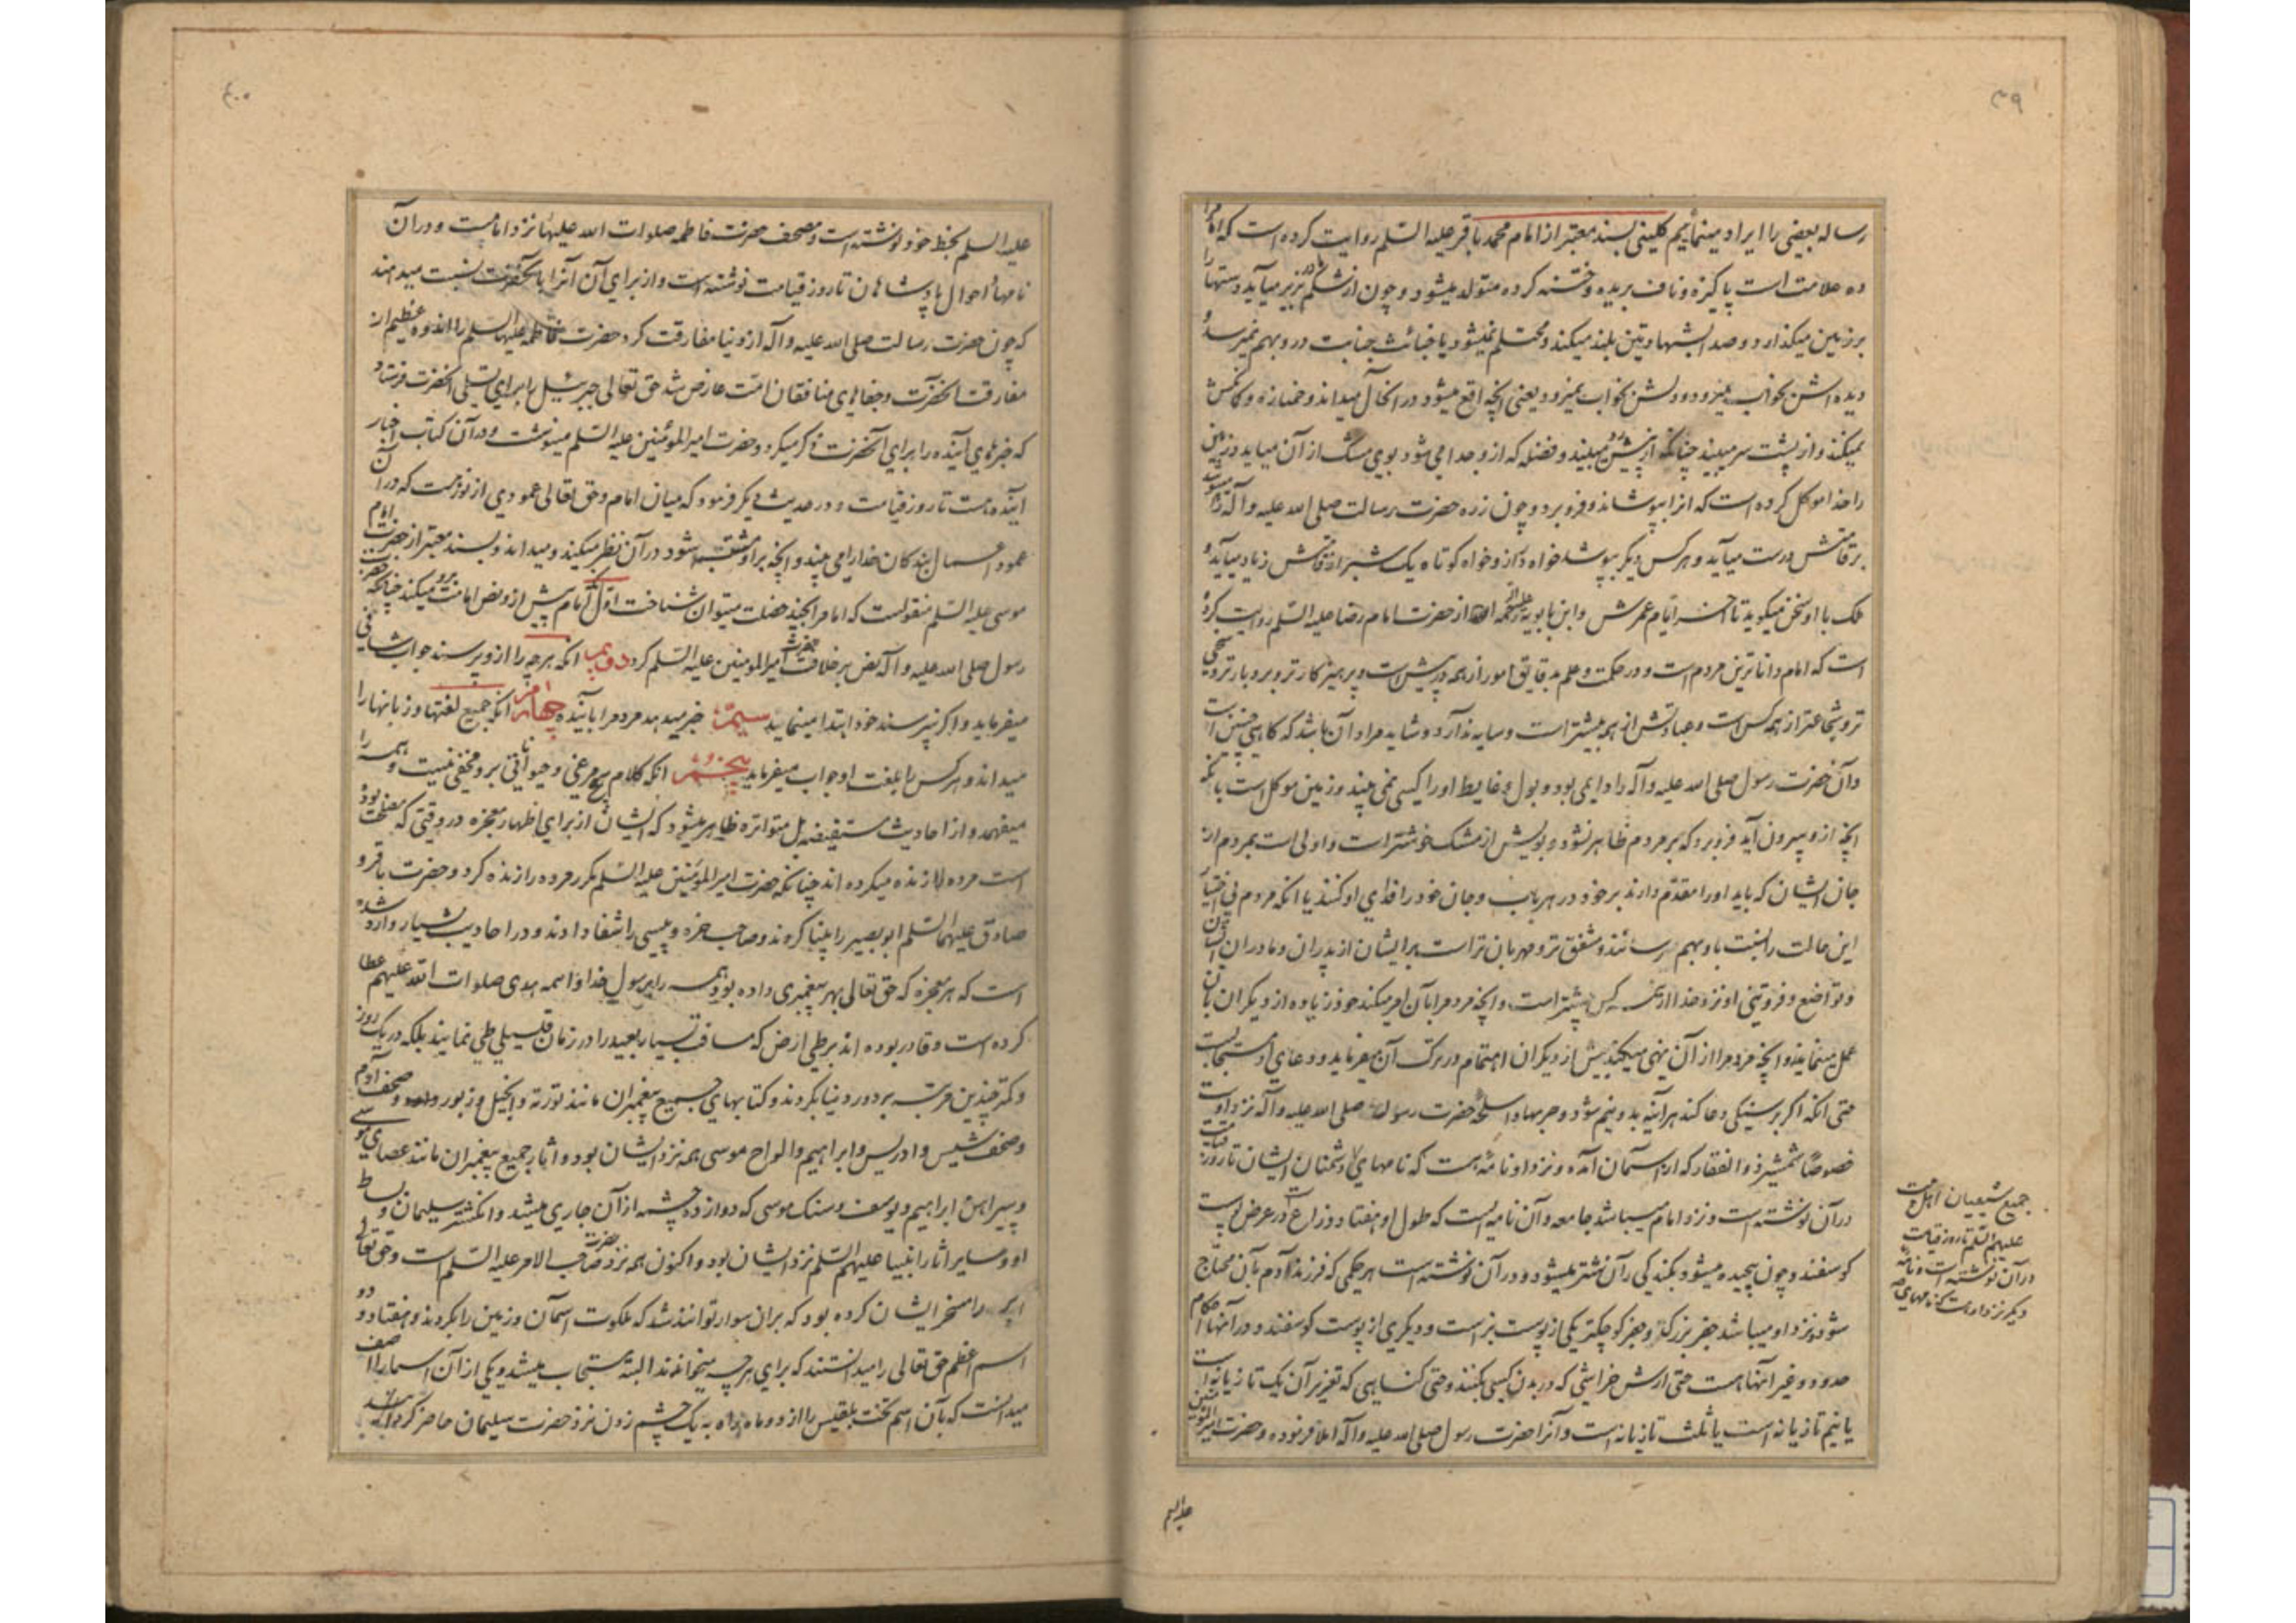 ۳۹
رساله بعضی را ایراد مینمائیم کلینی بسند معتبر از امام محمد باقر علیه السّلم روایت کرده است که امام را
ده علامت است پاکیزه و ناف بریده و ختنه کرده متولد میشود و چون از شکم مادر بزیر میآید دستها را
بر زمین میکذارد و صدا بشهادتین بلند میکند و محتلم نمیشود یا خباثت جنابت در و بهم نمیرسد و
دیده اش بخواب میرود و دلش بخواب نمیرود یعنی انچه واقع میشود در انحال میداند و خمیازه و کمانکش
نمیکند و از پشت سر میبیند چنانکه از پیش رو میبیند و فضله که از و جدا می شود بوی مشک از آن میاید و زمین
را خدا موکل کرده است که انرا بپوشاند و فرو برد و چون زره حضرت رسالت صلی الله علیه و آله را میپوشد
بر قامتش درست میآید و هر کس دیکر بپوشد خواه دراز و خواه کوتاه یک شبر از قامتش زیاد میآید و
ملک با او سخن میکوید تا آخر ایام عمرش و ابن بابویه علیه الرحمه از حضرت امام رضا علیه السّلم روایت کرده
است که امام داناترین مردم است و در حکمت و علم بدقایق امور از همه در پیش است و پرهیزکارتر و بردبارتر و سخی
تر و شجاعتر از همه کس است و عبادتش از همه بیشتر است و سایه ندارد و شاید مراد آن باشد که کاهی چنین است
و آن حضرت رسول صلی الله علیه و آله را دایمی بود و بول و غایط او را کسی نمی بیند و زمین موکل است بانکه
انچه از و بیرون آید فرو برد که بر مردم ظاهر نشود و بویش از مشک خوشتر است و اولی است بمردم از
جان ایشان که باید او را مقدم دارند بر خود در هر باب و جان خود را فدای او کنند یا انکه مردم بی اختیار
این حالت را نسبت باو بهم رسانند و مشفق تر و مهربان تر است بر ایشان از پدران و مادران ایشان
و تواضع و فروتنی او نزد خدا از همه کس بیشتر است و انچه مردم را بآن امر میکند خود زیاده از دیکران بآن
عمل مینماید و انچه مردم را از آن نهی میکند بیش از دیکران اهتمام در ترک آن میفرماید و دعای او مستجابست
حتی انکه اکر بر سنکی دعا کند هر آینه بدو نیم شود و حربها و اسلحه حضرت رسول صلی الله علیه و آله نزد اوست
خصوصاً شمشیر ذو الفقار که از آسمان آمده و نزد او نامهٔ هست که نامهای دشمنان ایشان تا روز قیامت
در آن نوشته است و نزد امام میباشد جامعه و آن نامه ایست که طول او هفتاد ذراع است در عرض پوست
کوسفند و چون پیچیده میشود بکندکی ران شتر میشود و در آن نوشته است هر حکمی که فرزند آدم بآن محتاج
شود و نزد او میباشد جفر بزرک و جفر کوچک یکی از پوست بز است و دیکری از پوست کوسفند و در آنها احکام
حدود و غیر آنها هست حتی ارش خراشی که در بدن کسی بکنند و حتی کناهی که تعزیر آن یک تازیانه است
یا نیم تازیانه است یا ثلث تازیانه است و آنرا حضرت رسول صلی الله علیه و آله املا فرموده و حضرت امیر المؤمنین
علیه السلم
جمیع شیعیان اهل بیت
علیهم السّلم تا روز قیامت
در آن نوشته است و نامهٔ
دیکر نزد او هست که نامهای
۴۰
علیه السلم بخط خود نوشته است و مصحف حضرت فاطمه صلوات الله علیها نزد امامست و در آن
نامها و احوال پادشاهان تا روز قیامت نوشته است و از برای آن آنرا بآنحضرت نسبت میدهند
که چون حضرت رسالت صلی الله علیه و آله از دنیا مفارقت کرد حضرت فاطمه علیها السلم را اندوه عظیم از
مفارقت آنحضرت و جفاهای منافقان امّت عارض شد حق تعالی جبرئیل را برای تسلی آنحضرت فرستاد
که خبرهای آینده را برای آنحضرت ذکر میکرد و حضرت امیر المؤمنین علیه السّلم مینوشت و در آن کتاب اخبار
آینده هست تا روز قیامت و در حدیث دیکر فرمود که میان امام و حق تعالی عمودی از نور هست که در آن
عمود اعمال بندکان خدا را می بیند و انچه بر او مشتبه شود در آن نظر میکند و میداند و بسند معتبر از حضرت امام
موسی علیه السّلم منقولست که امام را بچند خصلت میتوان شناخت اوّل آنکه امام پیش از و نص امامت برو میکند چنانکه حضرت
رسول صلی الله علیه و آله نص بر خلافت حضرت امیر المومنین علیه السّلم کرد دویم انکه هر چه را از و پرسند جواب شافی
میفرماید و اکر نپرسند خود ابتدا مینماید سیم خبر میدهد مردم را بآینده چهارم انکه جمیع لغتها و زبانها را
میداند و هر کس را بلغت او جواب میفرماید پنجم انکه کلام هیچ مرغی و حیوانی برو مخفی نیست و همه را
میفهمد و از احادیث مستفیضه بل متواتره ظاهر میشود که ایشان از برای اظهار معجزه در وقتی که مصلحت بوده
است مرده را زنده میکرده اند چنانکه حضرت امیر المؤمنین علیه السّلم مکرر مرده را زنده کرد و حضرت باقر و
صادق علیهما السّلم ابو بصیر را بینا کردند و صاحب خوره و پیسی را شفا دادند و در احادیث بسیار وارد شده
است که هر معجزه که حق تعالی بهر پیغمبری داده بود همه را برسول خدا و ائمه هدی صلوات الله علیهم عطا
کرده است و قادر بوده اند بر طی ارض که مسافت بسیار بعید را در زمان قلیلی طی نمایند بلکه در یک روز
و کمتر چندین مرتبه بر دور دنیا بکردند و کتابهای جمیع پیغمبران مانند توریة و انجیل و زبور و صحف آدم
و صحف شیث و ادریس و ابراهیم و الواح موسی همه نزد ایشان بود و آثار جمیع پیغمبران مانند عصای موسی
و پیراهن ابراهیم و یوسف و سنک موسی که دوازده چشمه از آن جاری میشد و انکشتر سلیمان و بساط
او و سایر آثار انبیا علیهم السّلم نزد ایشان بود و اکنون همه نزد حضرت صاحب الامر علیه السّلم است و حق تعالی
ابر را مسخر ایشان کرده بود که بران سوار توانند شد که ملکوت آسمان و زمین را بکردند و هفتاد و دو
اسم اعظم حق تعالی را میدانستند که برای هر چه میخواندند البته مستجاب میشد و یکی از آن اسما را آصف
میدانست که بآن اسم تخت بلقیس را از دو ماه راه به یک چشم زدن نزد حضرت سلیمان حاضر کردانید